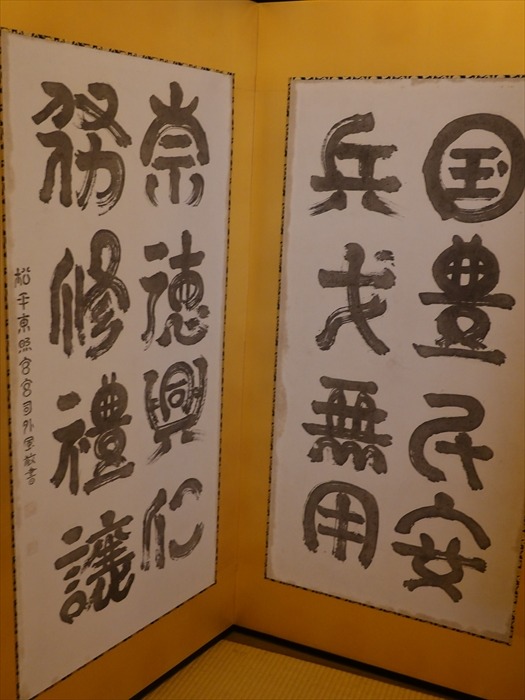 国豊民安
兵戈無用
崇徳興仁
務修禮讓
松平東照宮宮司外里敬書